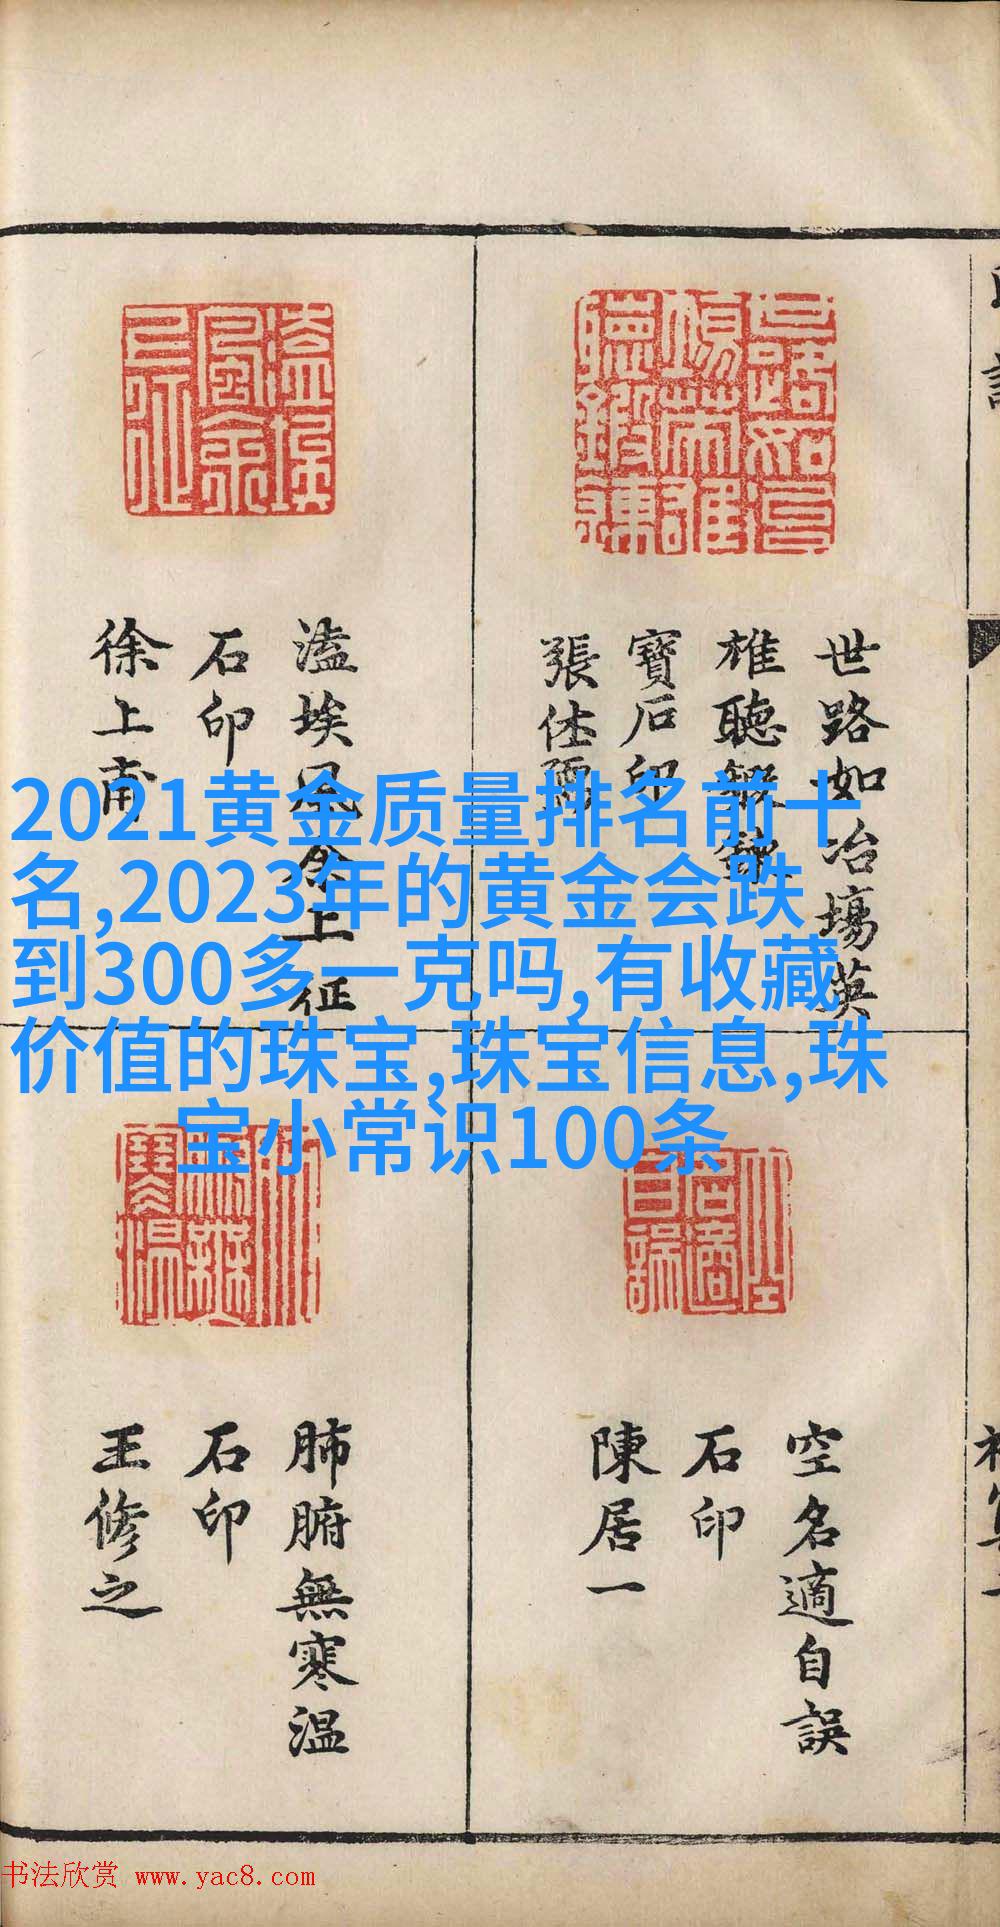 世路如冶場英
雄聽鍛鍊
寶石印
張仕爾
溘埃風余上征
石印
徐上甫
2021黄金质量排名前十
名,2023年的黄金会跌
到300多一克吗,有收藏
价值的珠宝,珠宝信息,珠
宝小常识100条
空名適自誤
石印
陳居一
肺腑無寒温
石印
王修之
书法欣赏 www.yac8.com